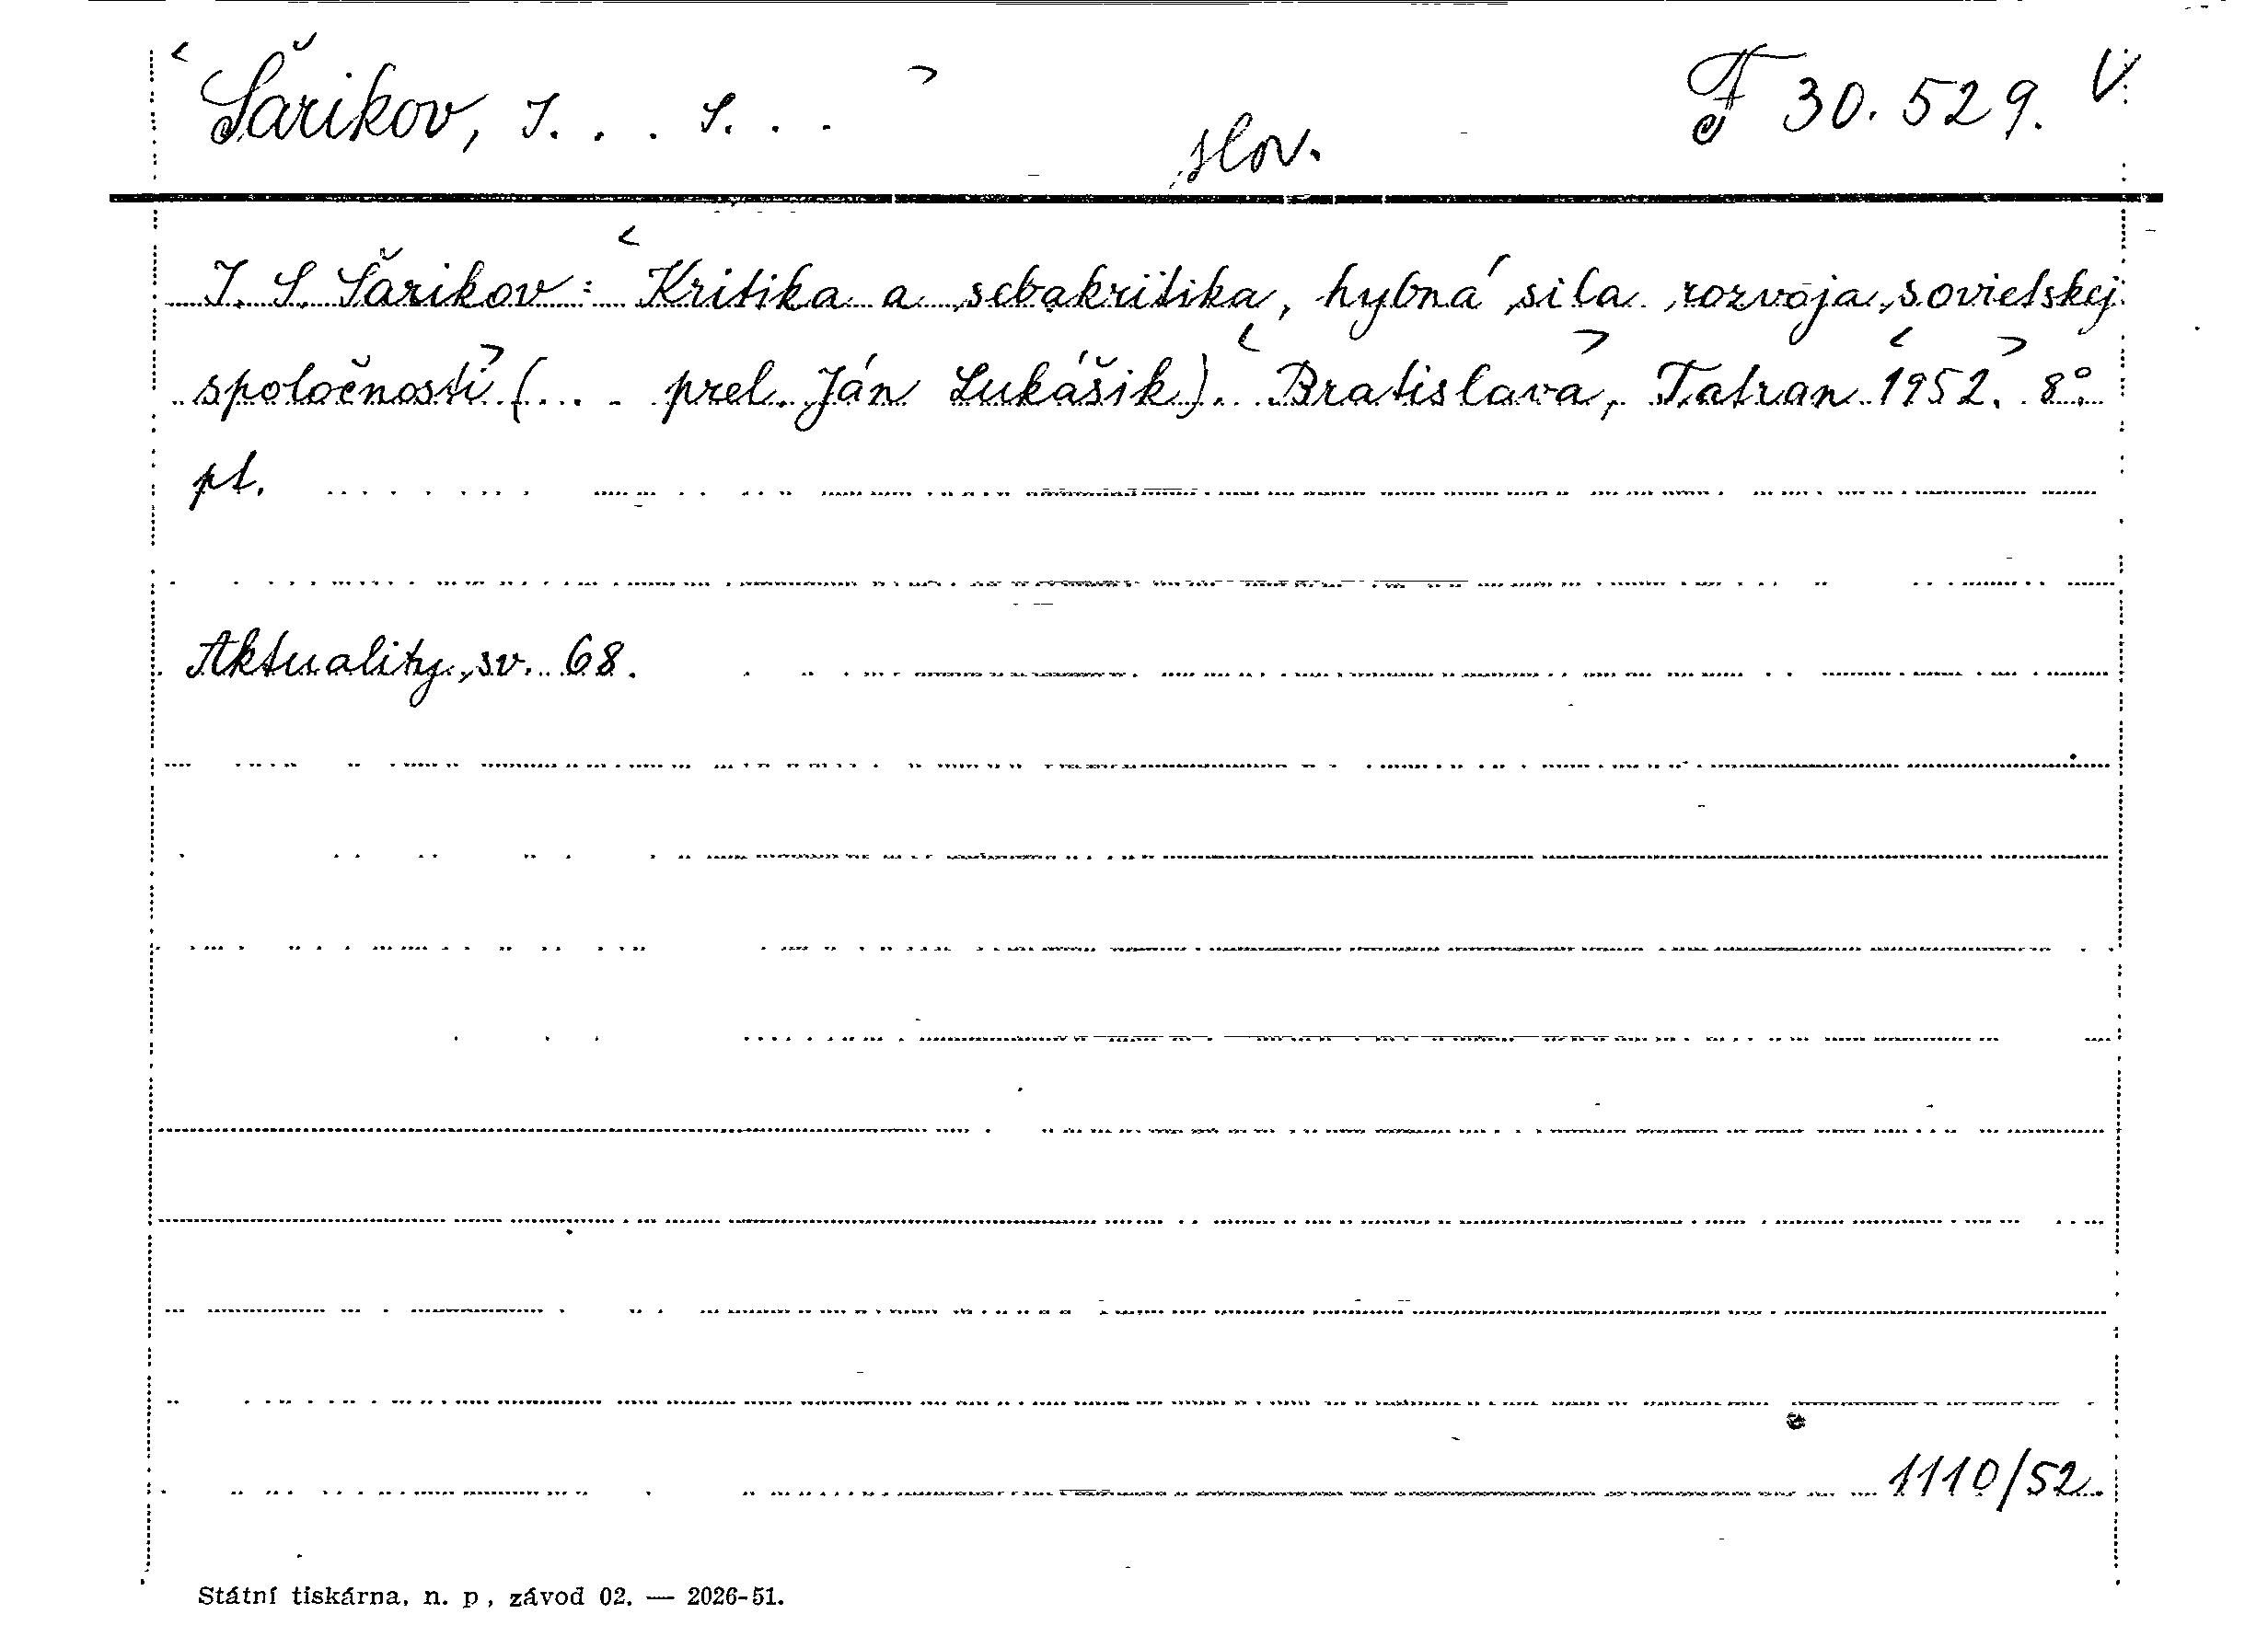 Šarikov, I. . . S. . .
slov.
F 30.529. V
I. S. Šarikov: Kritika a sebakritika, hybná sila rozvoja sovietskej
spoločnosti (... prel. Ján Lukášik). Bratislava, Tatran 1952. 8°.
pt.
Aktuality, sv. 68.
1110/52.
Státní tiskárna, n. p., závod 02. — 2026-51.